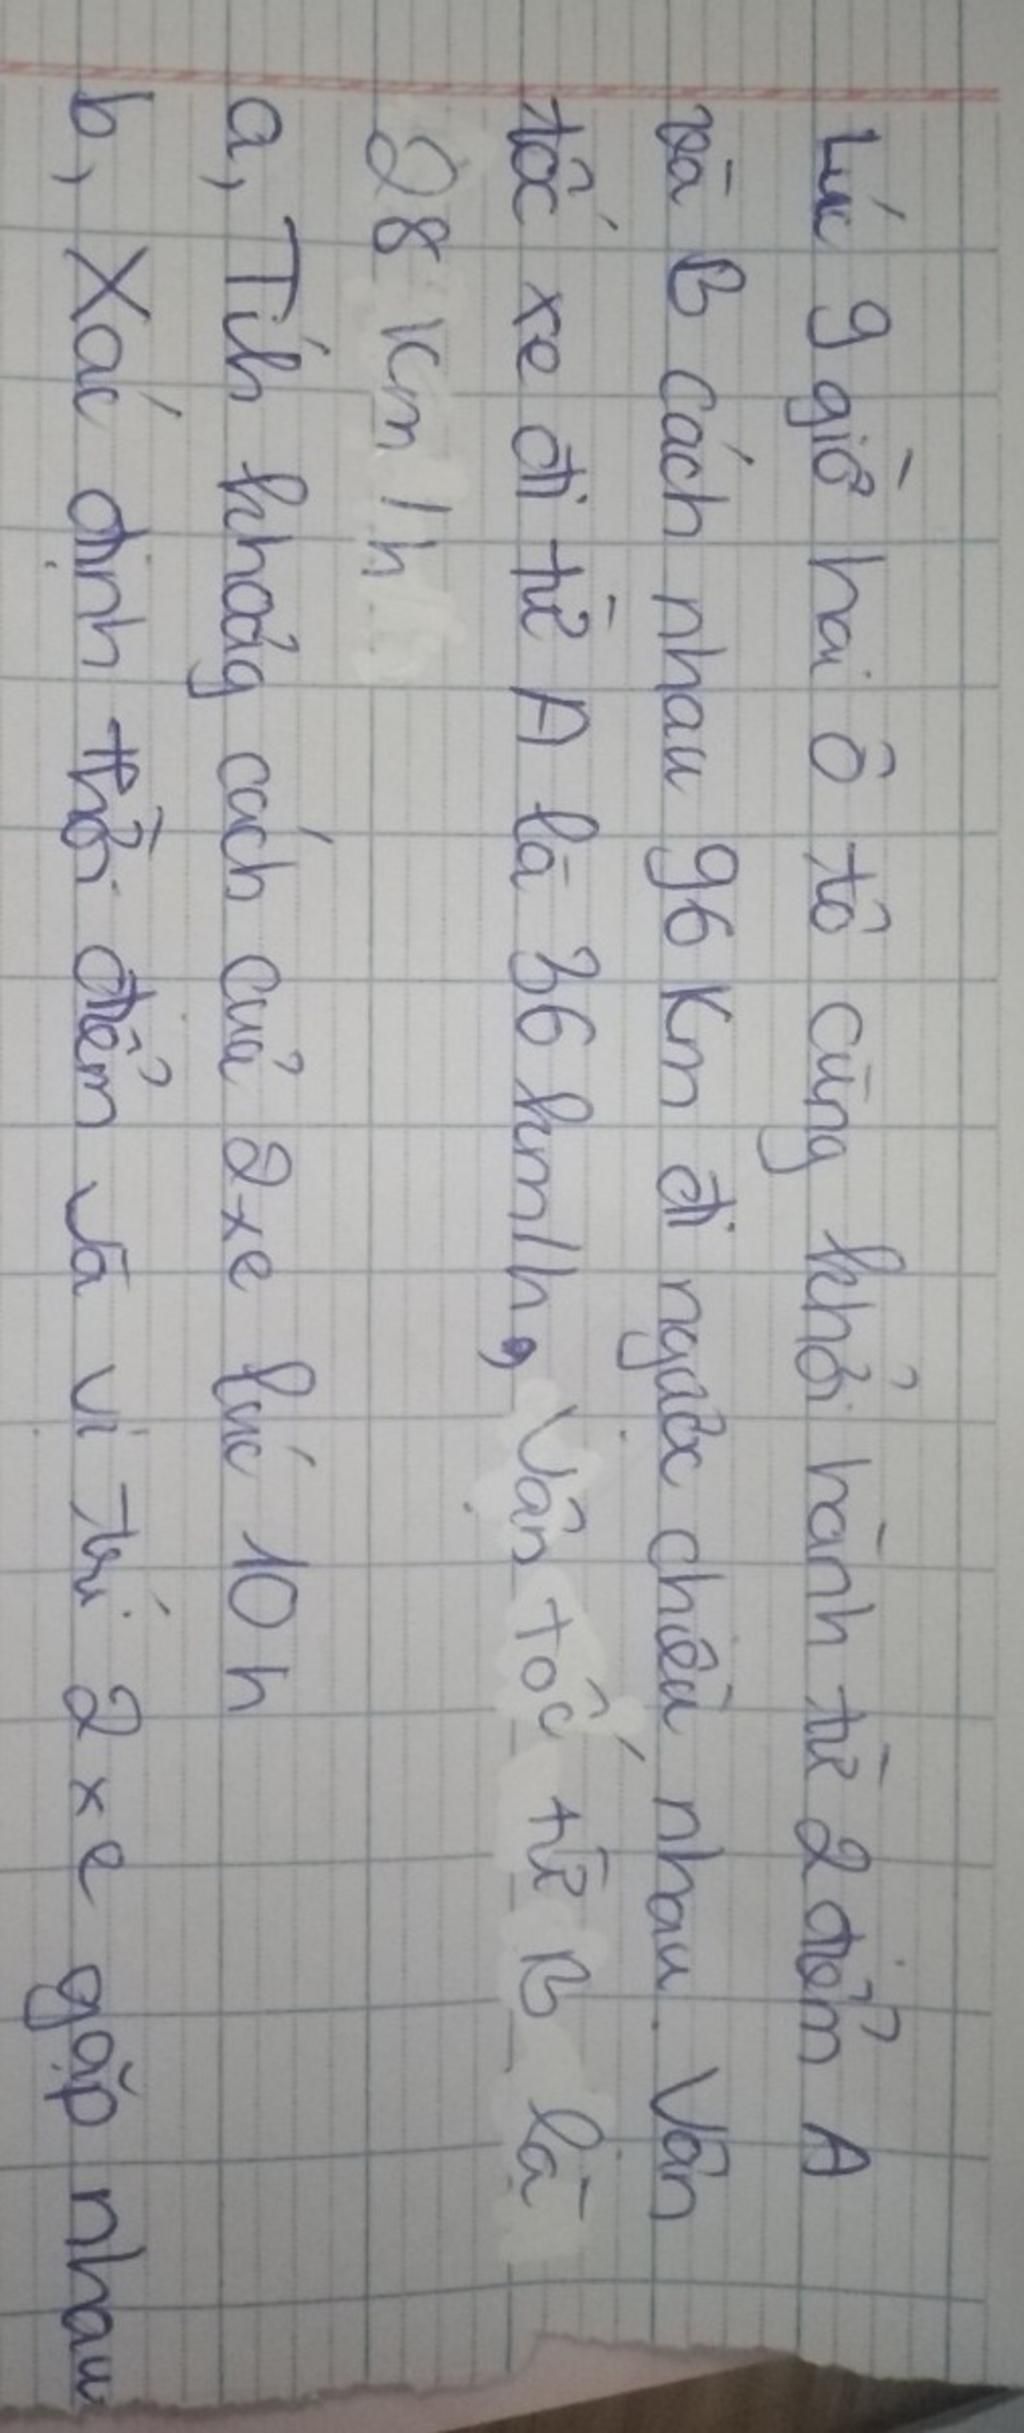 Lúc 9 giờ hai ô tô cùng khởi hành từ 2 điểm A
và B cách nhau 96 Km đi ngược chiều nhau. Vận
tốc xe đi từ A là 36 km/h, Vận tốc từ B là
28 Km/h
a, Tíh khoảg cách của 2 xe lúc 10 h
b, Xác định thời điểm và vị trí 2 xe gặp nhau